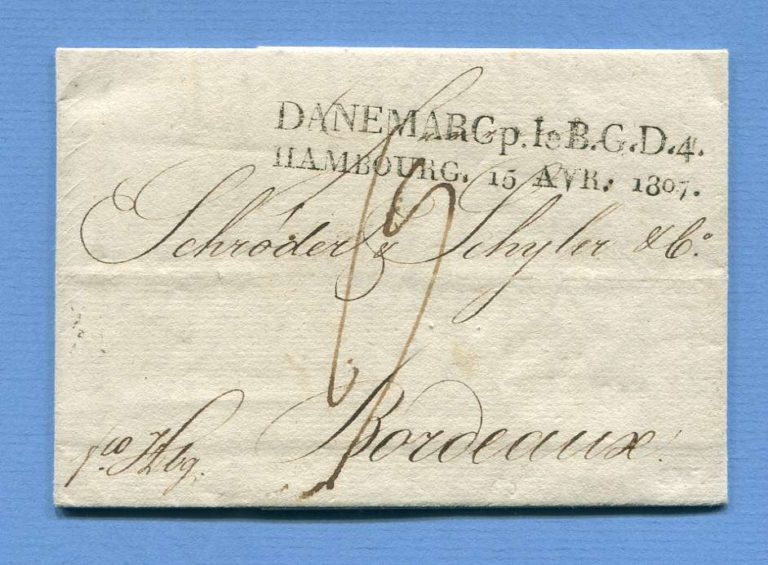 DANEMARC p. le B. G. D. 4.
HAMBOURG. 15 AVR. 1807.
Schröder & Schyler & C.º
Bordeaux.
fco Hbg.